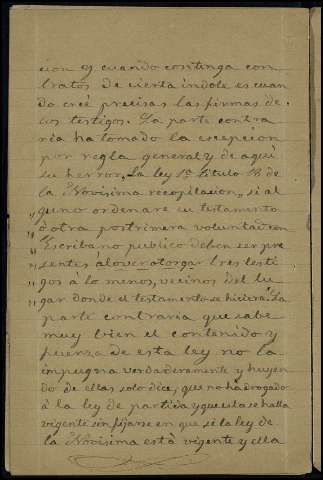 cion es cuando contenga con
tratos de cierta indole es cuan
do creé precisas las firmas de
los testigos. La parte contra
ria ha tomado la escepcion
por regla general y de aqui
su herror. La ley 1ª titulo 18 de
la Novisima recopilacion, si al
" guno ordenare su testamento
" ó otra postrimera voluntad con
" Escribano publico deben ser pre
" sentes a lo ver otorgar tres testi
" gos á lo menos, vecinos del lu
" gar donde el testamento se hiciera. La
parte contraria que sabe
muy bien el contenido y
fuerza de esta ley no la
impugna verdaderamente y huyen
do de ellas solo dice, que no ha drogado
á la ley de partida y que esta se halla
vigente sin fijarse en que si la ley de
la Novisima está vigente y ella